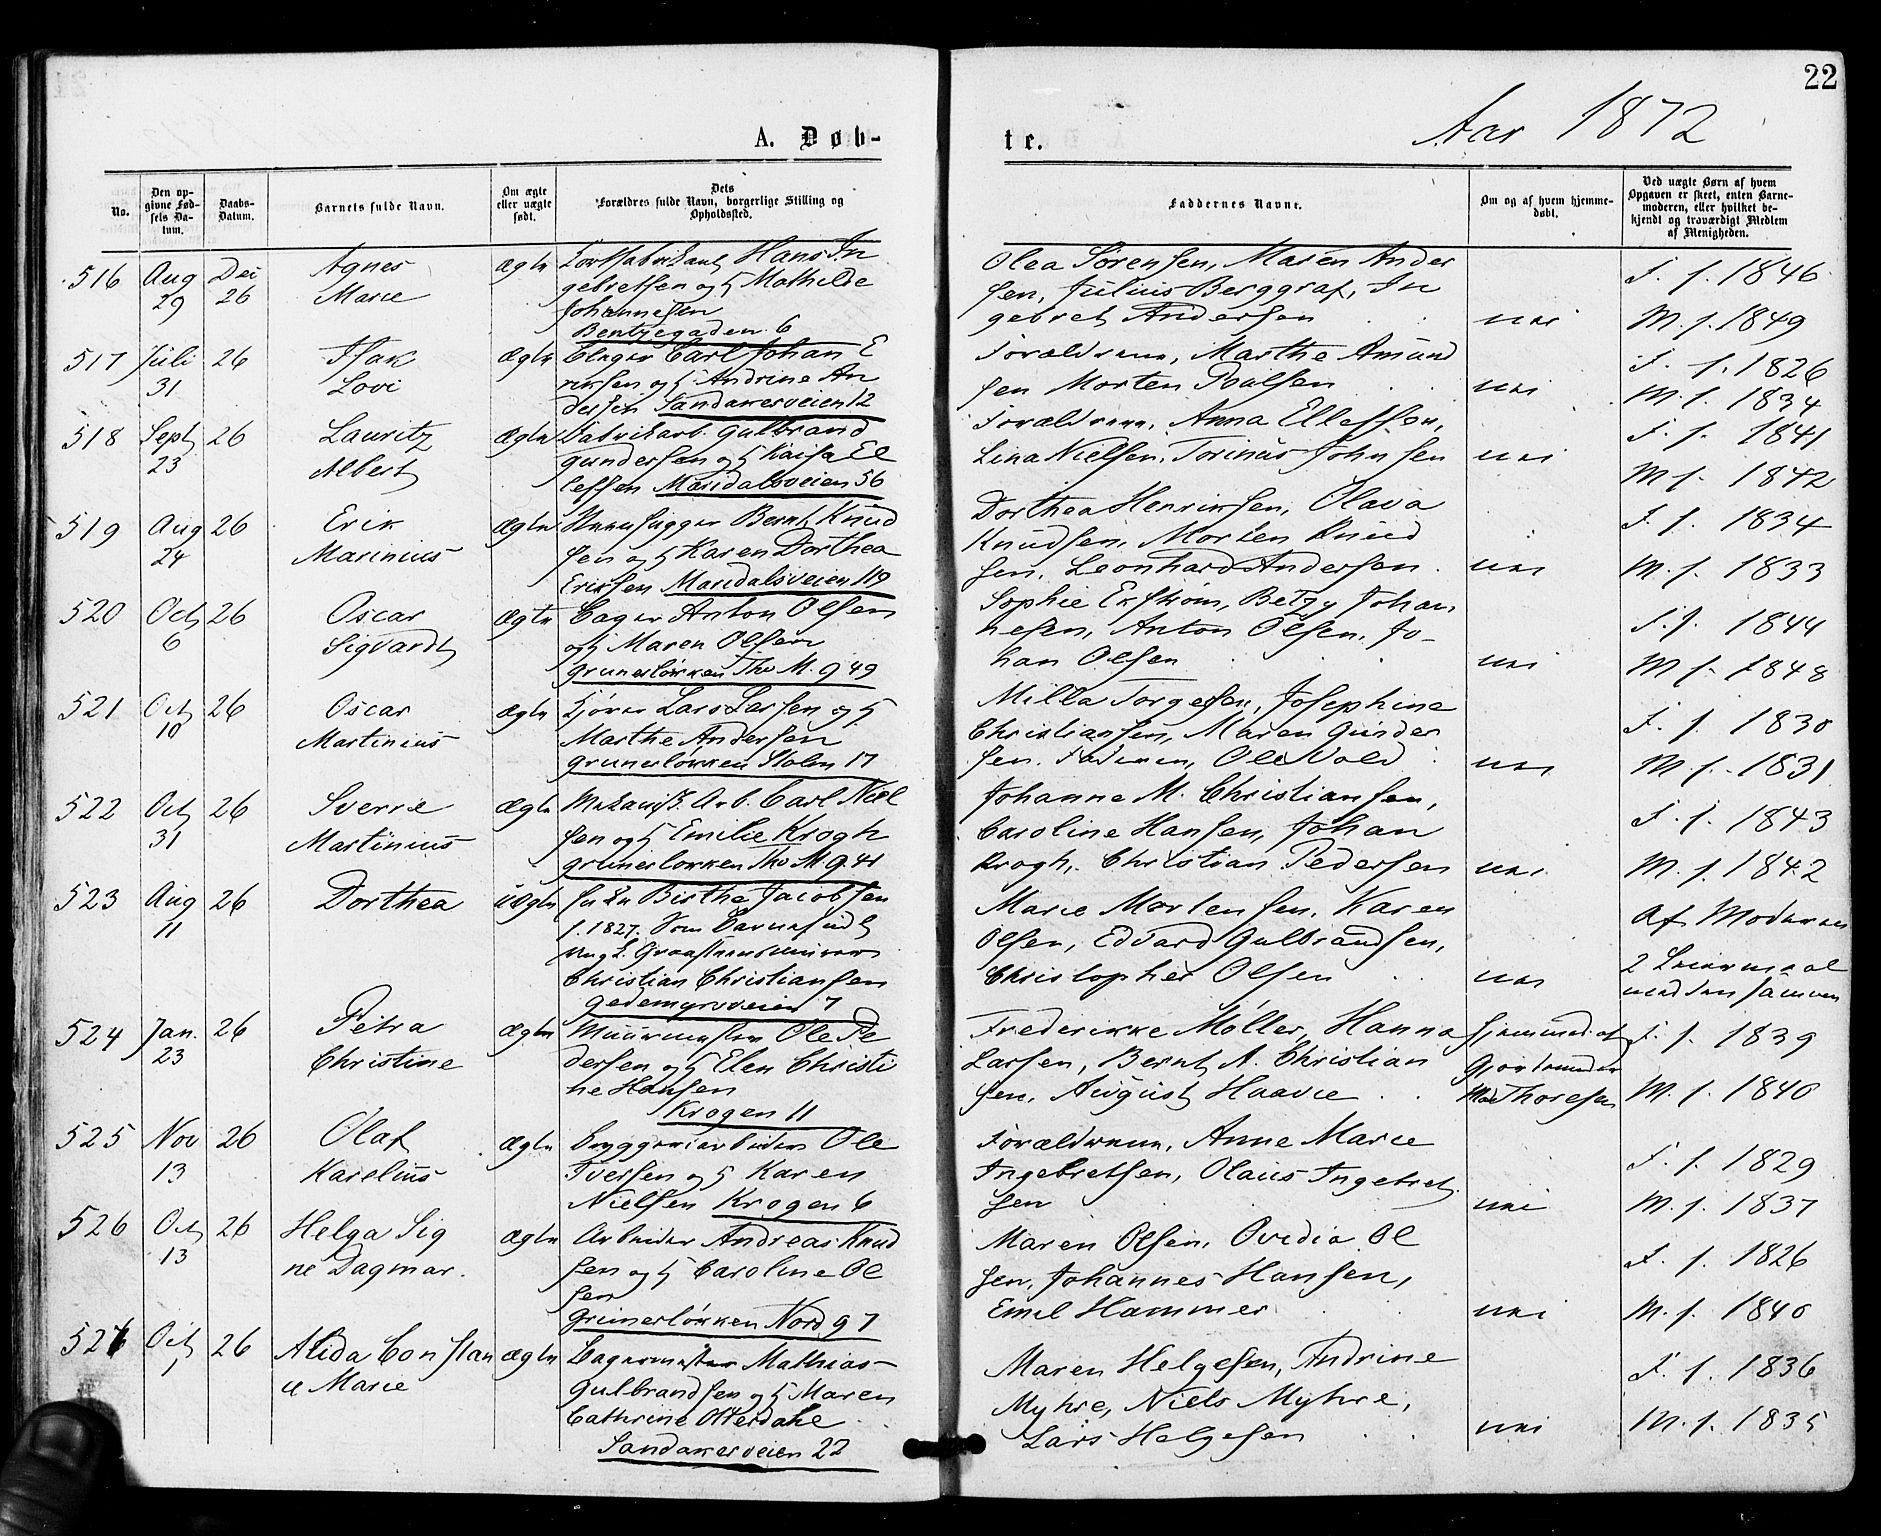 22
A. Døb-
te.
Aar 1872
No.
Den op-
givne Fød-
sels Da-
tum.
Daabs-
Datum.
Barnets fulde Navn.
Om ægte
eller uægte
født.
Dets
Forældres fulde Navn, borgerlige Stilling og
Opholdssted.
Faddernes Navne.
Om og af hvem hjemme-
døbt.
Ved uægte Børn af hvem
Opgaven er skeet, enten Barne-
moderen, eller hvilket be-
kjendt og troværdigt Medlem
af Menigheden.
516 Aug 29 Dec 26
Agnes
Marie
ægte
Hans In
gebretsen og H Mathilde
Johannesen
Bentzegaden 6
Olea Sørensen, Maren Ander
sen, Julius Berggraf, In
gebret Andersen
nei
F. f. 1846
M. f. 1849
517 Juli 31 26
Isak
Lovi
ægte
Carl Johan E
riksen og H Andrine An
dersen Sandakerveien 12
Forældrene, Marthe Amund
sen Morten Poulsen
nei
F. f. 1826
M. f. 1834
518 Sept 23 26
Lauritz
Albert
ægte
Fabrikarb. Gulbrand
Gundersen og H Kaisa El
lefsen Maridalsveien 56
Forældrene, Anna Ellefsen,
Lina Nielsen, Torinus Johnsen
nei
F. f. 1841
M. f. 1842
519 Aug 24 26
Erik
Marinius
ægte
Bernt Knud
sen og H Karen Dorthea
Eriksen Maridalsveien 119
Dorthea Henriksen, Olava
Knudsen, Morten Knud
sen, Leonhard Andersen
nei
F. f. 1834
M. f. 1833
520 Oct 6 26
Oscar
Sigvardt
ægte
Bager Anton Olsen
og H Maren Olsen
Grunerløkken Thv M. g 49
Sophie Ekstrøm, Betzy Johan
nesen, Anton Olsen, Jo-
han Olsen
nei
F. f. 1844
M. f. 1848
521 Oct 10 26
Oscar
Martinius
ægte
Kjører Lars Larsen og H
Marthe Andersen
Grunerløkken Stolen 17
Milla Torgersen, Josephine
Christiansen, Maren Gunder
sen. Faderen, Ole Vold
nei
F. f. 1830
M. f. 1831
522 Oct 31 26
Sverre
Martinius
ægte
Mekanisk Arb. Carl Niel
sen og H Emilie Krogh
Grunerløkken Thv M g. 41
Johanne M. Christiansen,
Caroline Hansen, Johan
Krogh, Christian Pedersen
nei
F. f. 1843
M. f. 1842
523 Aug 11 26
Dorthea
uægte
Birthe Jacobsen
f. 1827. Som Barnefader
Christian Christiansen
Gedemyrsveien 7
Marie Mortensen, Karen
Olsen, Edvard Gulbrandsen,
Christopher Olsen
nei
Af Moderen
2 Leiermaal
med den samme
524 Jan. 23 26
Petra
Christine
ægte
Muurmester Ole Pe
dersen og H Elen Christi
ne Hansen
Krogen 11
Frederikke Møller, Hanna
Larsen, Bernt A. Christian
sen, August Haavie
Hjemmed. af
Gjordemoder
Mad Thoresen
F. f. 1839
M. f. 1840
525 Nov 13 26
Olaf
Karelius
ægte
Bryggeriarbeider Ole
Iversen og H Karen
Nielsen Krogen 6
Forældrene, Anne Marie
Ingebretsen, Olaus Ingebret
sen
nei
F. f. 1829
M. f. 1837
526 Oct 13 26
Helga Sig
ne Dagmar.
ægte
Arbeider Andreas Knud
sen og H Caroline Ol
sen
Grunerløkken Nord g 7
Maren Olsen, Ovidia Ol
sen, Johannes Hansen,
Emil Hammer
nei
F. f. 1826
M. f. 1840
527 Oct 1 26
Alida Constan
ce Marie
ægte
Bagermester Mathias
Gulbrandsen og H Maren
Cathrine Otterdahl
Sandakerveien 22
Maren Helgesen, Andrine
Myhre, Niels Myhre,
Lars Helgesen
nei
F. f. 1836
M. f. 1835